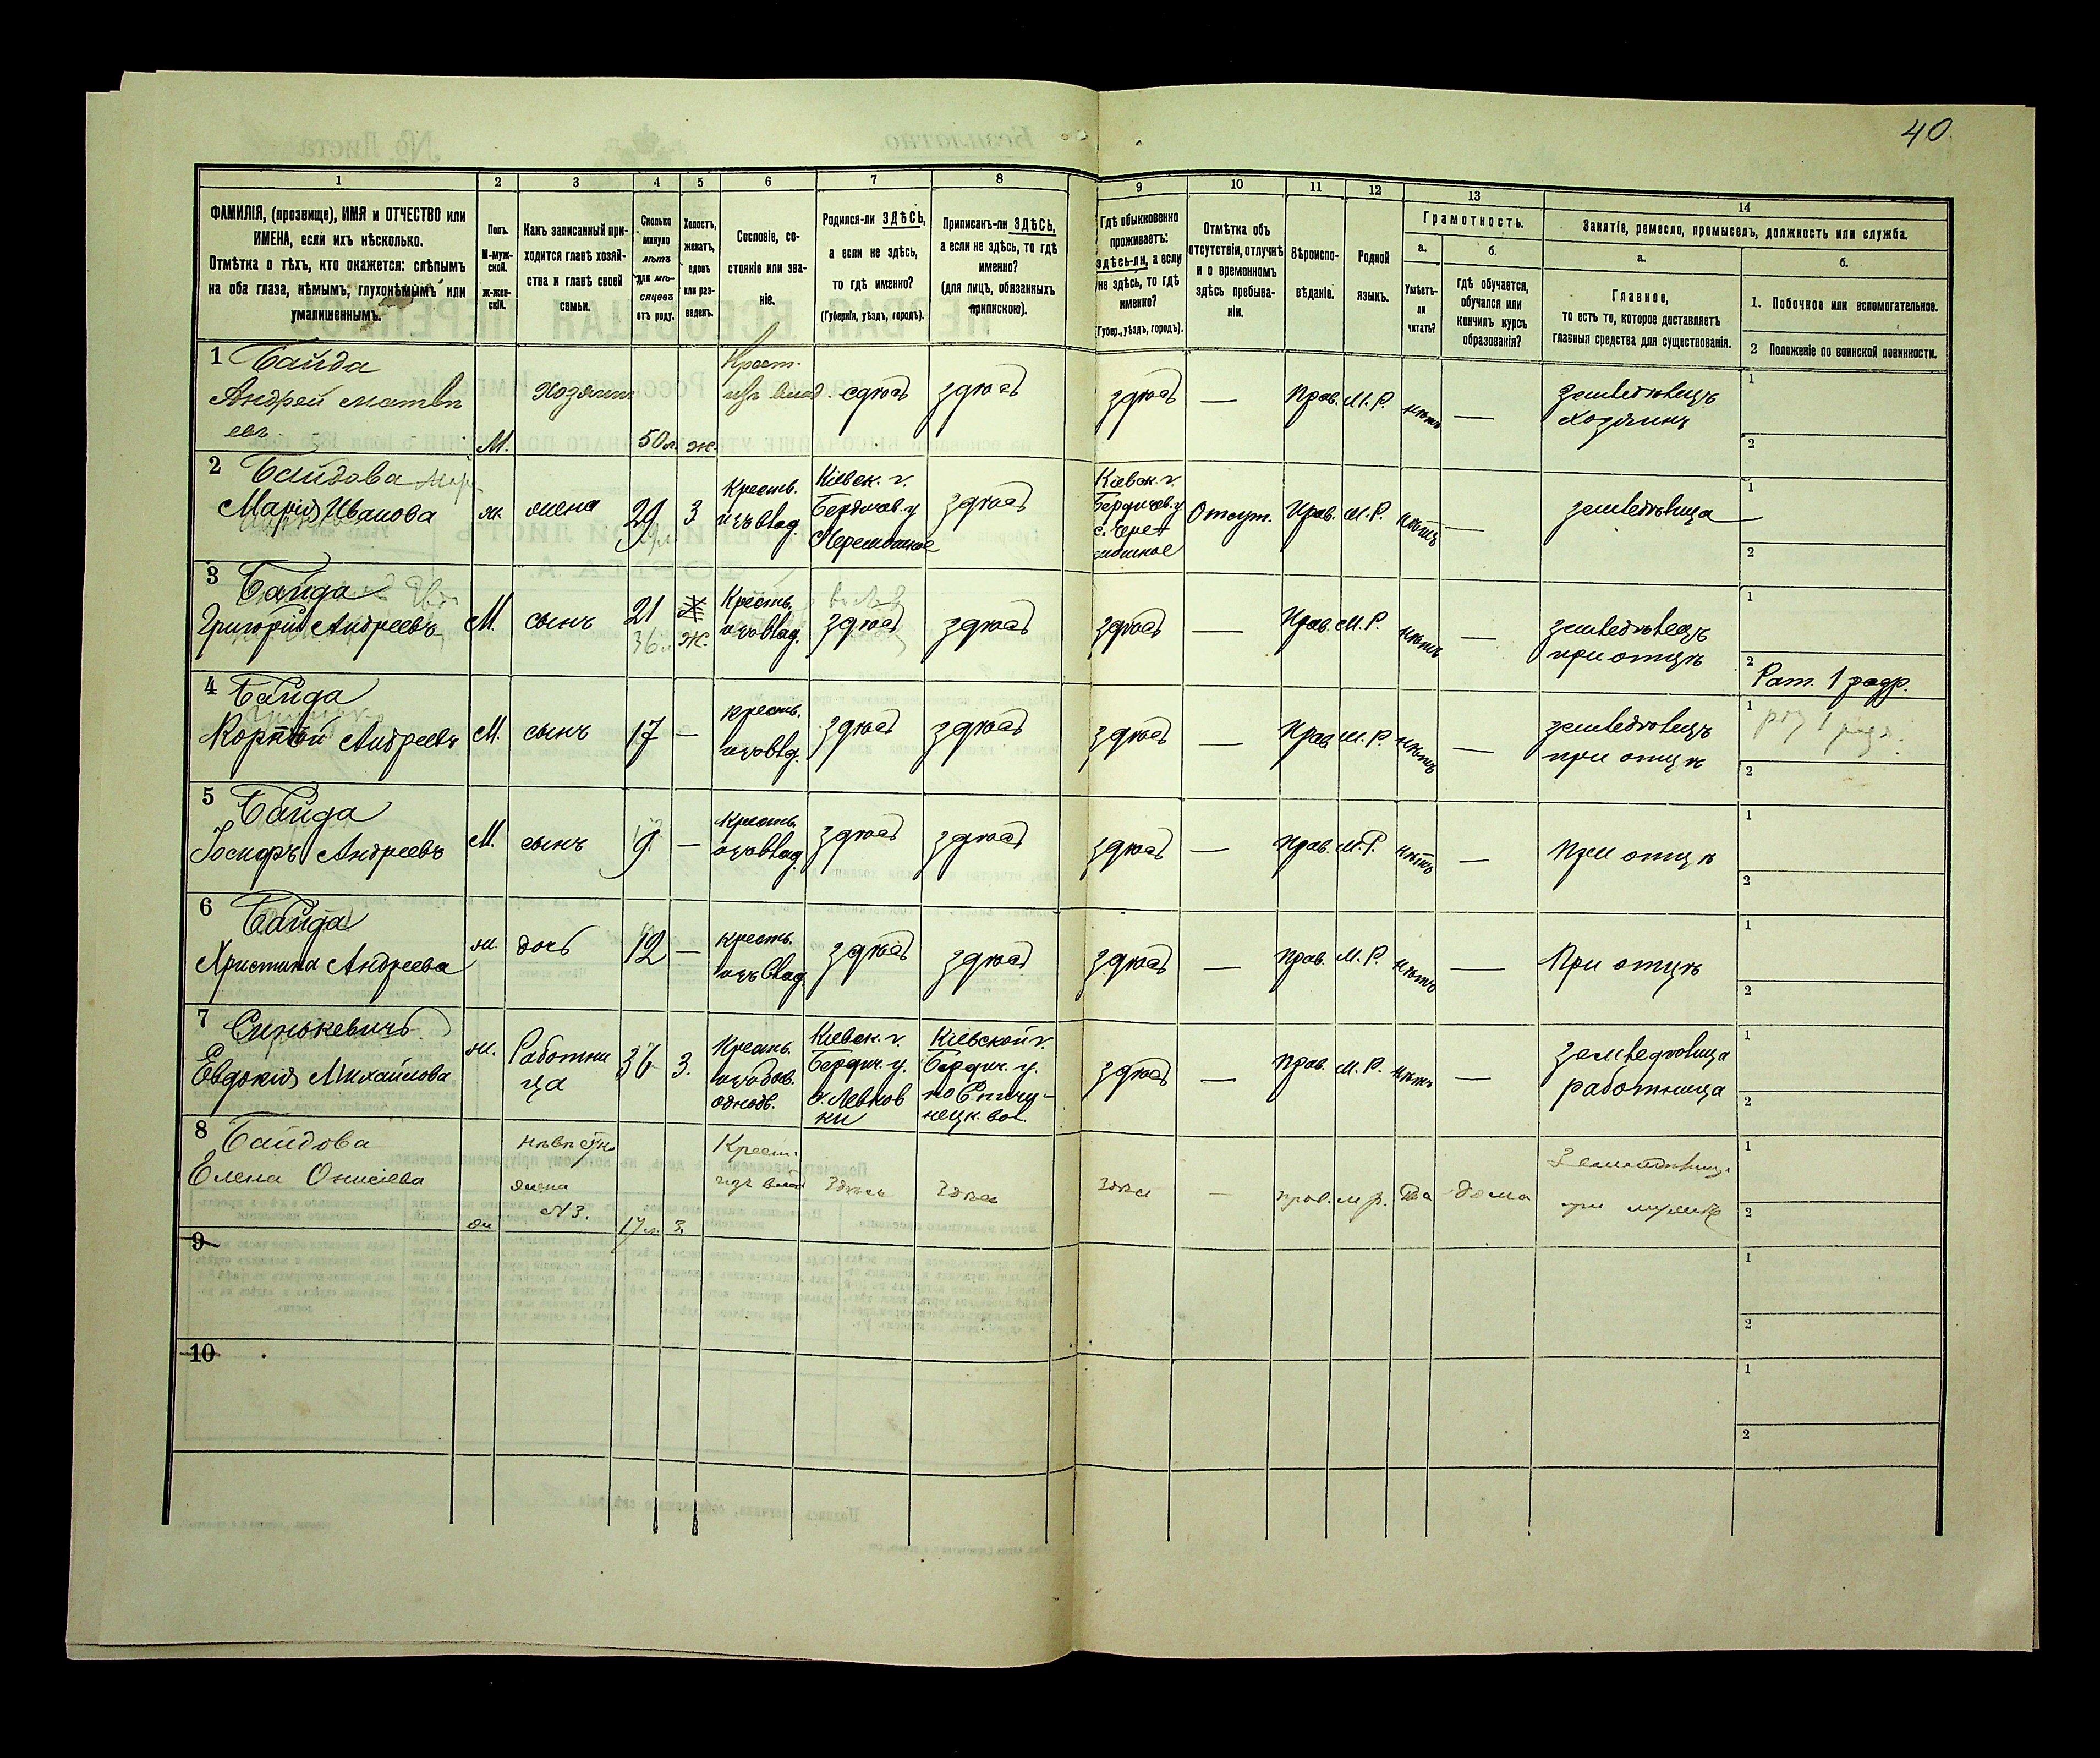 40
1 2 3 4 5 6 7 8 9 10 11 12 13 14
ФАМИЛІЯ, (прозвище), ИМЯ и ОТЧЕСТВО или
ИМЕНА, если ихъ нѣсколько.
Отмѣтка о тѣхъ, кто окажется: слѣпымъ
на оба глаза, нѣмымъ, глухонѣмымъ или
умалишеннымъ.
Полъ.
М-муж-
ской.
ж-жен-
скій.
Какъ записанный при-
ходится главѣ хозяй-
ства и главѣ своей
семьи.
Сколько
минуло
лѣтъ
или мѣ-
сяцевъ
отъ роду.
Холостъ,
женатъ,
вдовъ
или раз-
веденъ.
Сословіе, со-
стояніе или зва-
ніе.
Родился-ли ЗДѢСЬ,
а если не здѣсь,
то гдѣ именно?
(Губернія, уѣздъ, городъ).
Приписанъ-ли ЗДѢСЬ,
а если не здѣсь, то гдѣ
именно?
(для лицъ, обязанныхъ
припискою).
Гдѣ обыкновенно
проживаетъ:
здѣсь-ли, а если
не здѣсь, то гдѣ
именно?
(Губер., уѣздъ, городъ).
Отмѣтка объ
отсутствіи, отлучкѣ
и о временномъ
здѣсь пребыва-
ніи.
Вѣроиспо-
вѣданіе.
Родной
языкъ.
Грамотность.
а.
Умѣетъ-
ли
читать?
б.
гдѣ обучается,
обучался или
кончилъ курсъ
образованія?
Занятія, ремесло, промыселъ, должность или служба.
а.
Главное,
то есть то, которое доставляетъ
главныя средства для существованія.
б.
1. Побочное или вспомогательное.
2 Положеніе по воинской повинности.
1 Байда
Андрей Матвѣ
евъ
М.
Хозяинъ
50 л.
ж.
Крест.
изъ влад.
здѣсь
здѣсь
здѣсь
—
Прав.
М.Р.
нѣтъ
—
земледѣлецъ
хозяинъ
1
2
2 Байдова
Марія Иванова
ж.
жена
29
З
Кресть.
изъ влад.
Кіевск. г.
Бердичев. у
здѣсь
Кіевск. г.
Бердичев. у
Отсут.
Прав.
М.Р.
нѣтъ
—
земледѣлица
1
2
3 Байда
Григорій Андреевъ
М.
сынъ
21
36
ж.
Кресть.
изъ влад.
здѣсь
здѣсь
здѣсь
—
Прав.
М.Р.
нѣтъ
—
земледѣлецъ
при отцѣ
1
2 Рат. 1 разр.
4 Байда
Корній Андреевъ
М.
сынъ
17
—
кресть.
изъ влад.
здѣсь
здѣсь
здѣсь
—
Прав.
М.Р.
нѣтъ
—
земледѣлецъ
при отцѣ
1
2
5 Байда
Іосифъ Андреевъ
М.
сынъ
9
—
Кресть.
изъ влад.
здѣсь
здѣсь
здѣсь
—
Прав.
М.Р.
нѣтъ
—
При отцѣ
1
2
6 Байда
Христина Андреева
ж.
дочь
12
—
кресть.
изъ влад.
здѣсь
здѣсь
здѣсь
—
прав.
М.Р.
нѣтъ
—
При отцѣ
1
2
7 Синькевичъ
Евдокія Михайлова
ж.
Работни
ца
36
З.
Кресть.
однодв.
Кіевск. г.
Бердич. у.
с. Левков
ки
Кіевской г.
Бердич. у.
нецк. вол.
здѣсь
—
прав.
М.Р.
нѣтъ
—
земледѣлица
работница
1
2
8 Байдова
Елена Онисіева
ж
невѣстка
жена
№ 3.
17 л.
З.
Крест.
изъ влад
Здѣсь
Здѣсь
Здѣсь
—
прав.
м.р.
Да
дома
Земледѣлица
при мужѣ
1
2
9
1
2
10
1
2